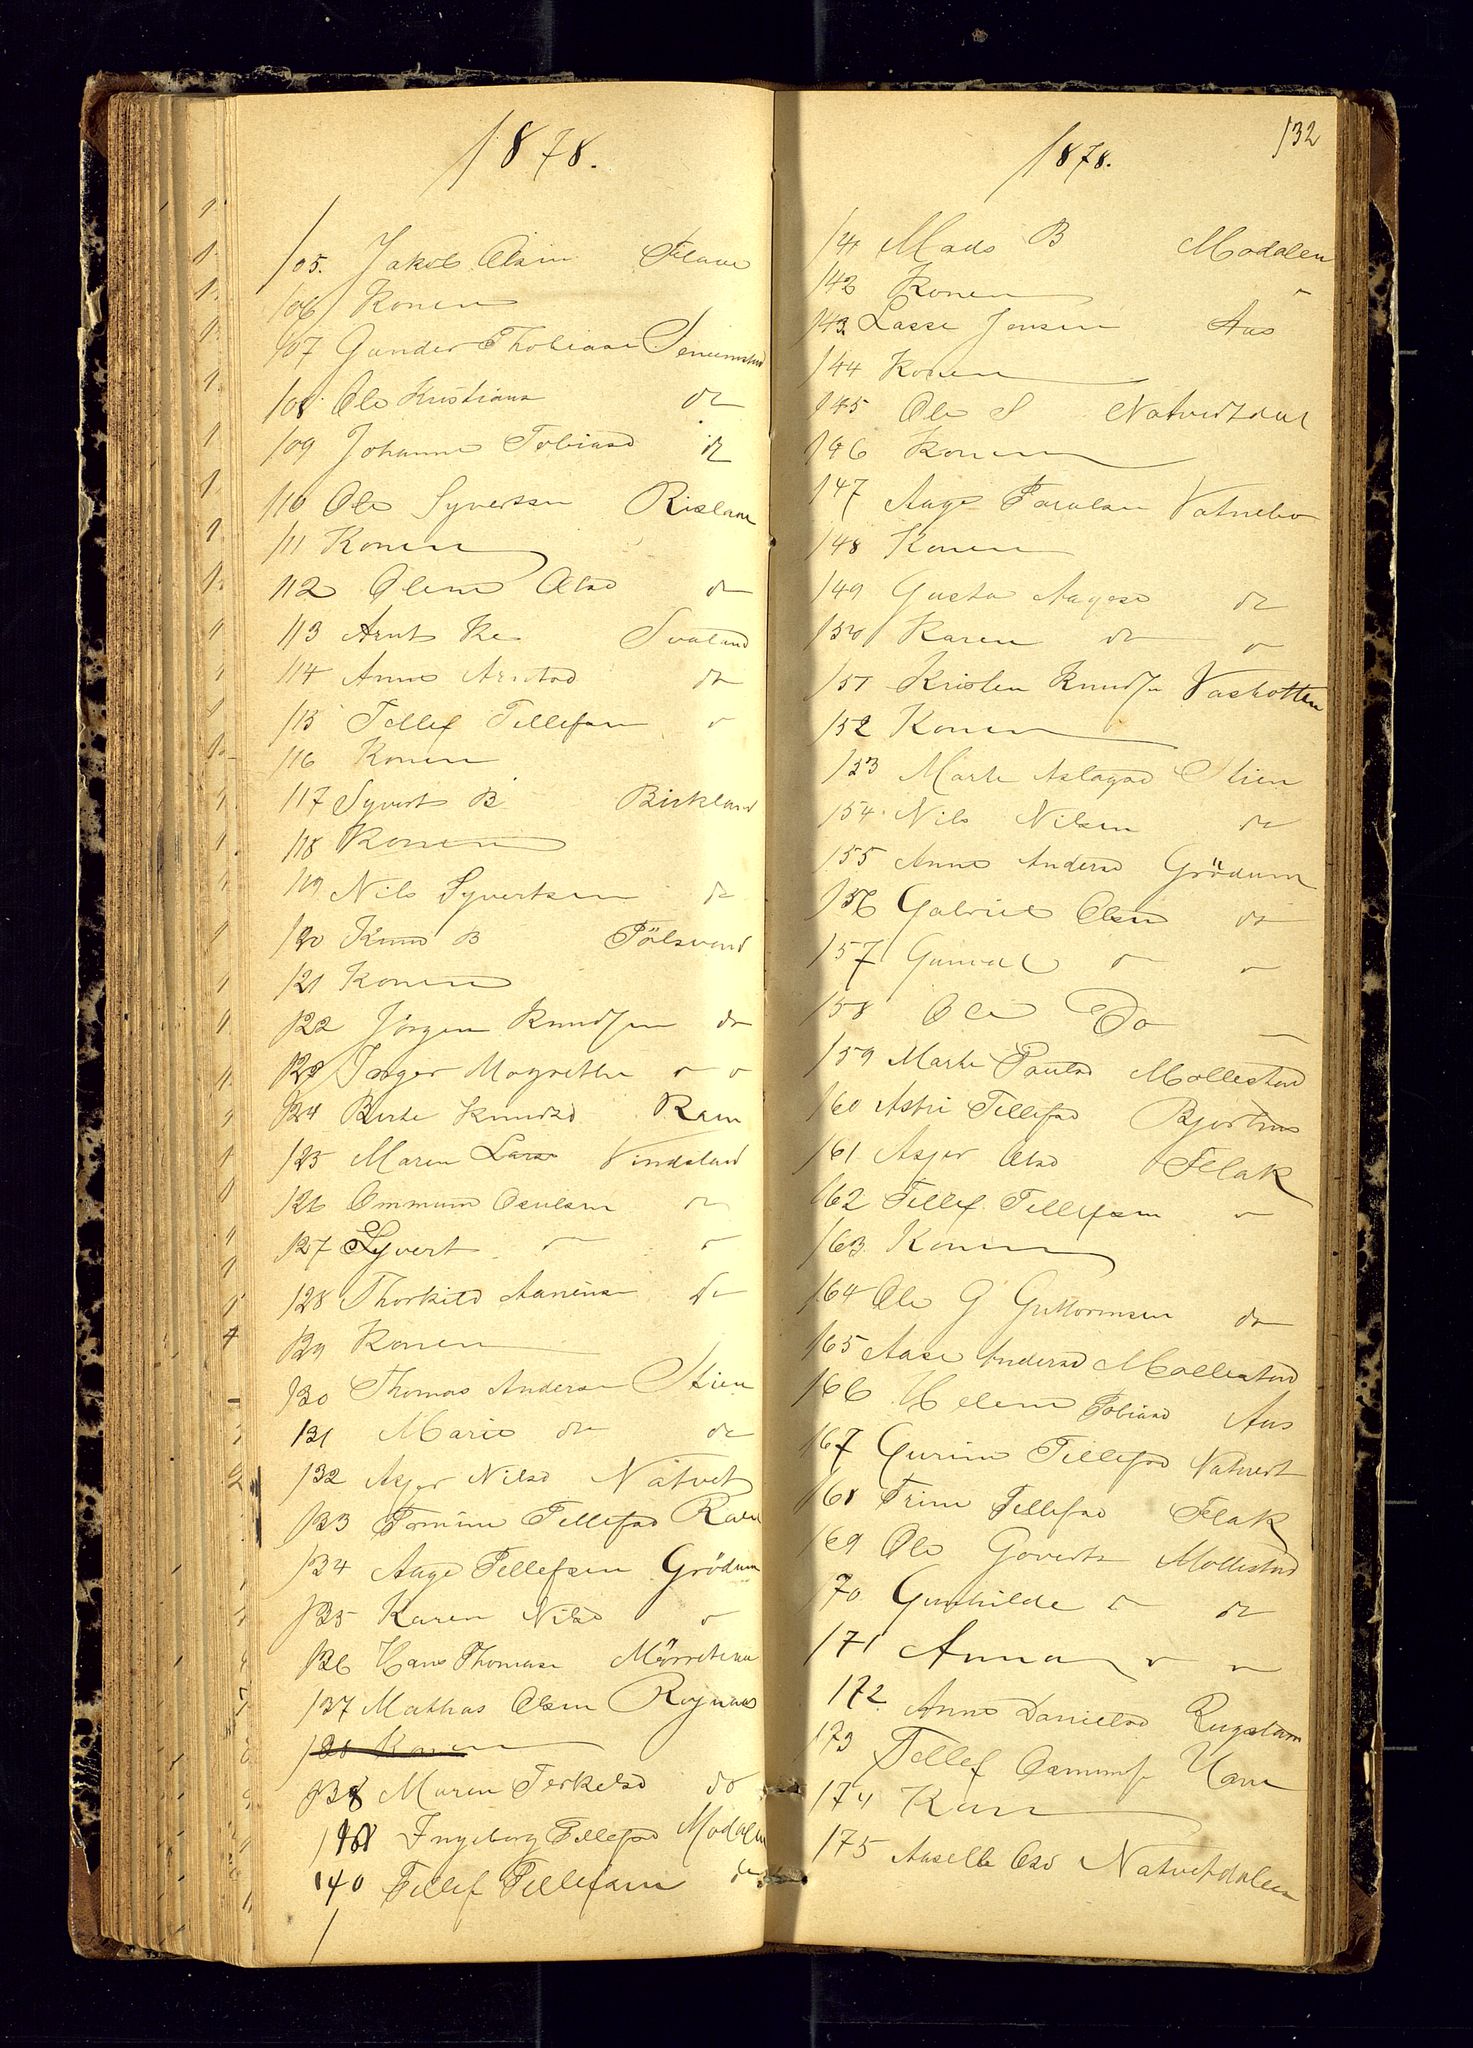 1878.
105. Jakob Olsen Flaae
106 Konen
107 Gunder Thobiase
108 Ole Kristians do
109 Johanne Tobiasd do
110 Ole Syvertsen Rislaa
111 Konen
112 Olene Olsd do
113 Arnt Svaland
114 Anne Arntsd do
115 Tellef Tellefsen "
116 Konen
117 Syvert B Birkland
118 Konen
119 Nils Syvertsen do
120 Knud B Pölsvand
121 Konen
122 Jörgen Knudsen do
123 Inger Magrethe " "
124 Berte Knudsd Ram
125 Maren Lars Vindsland
126 Ommund Osulsen do
127 Syvert " "
128 Thorkild Aanens do
129 Konen
130 Thomas Anderse Stien
131 Marie do do
132 Asjer Nilsd Natvet
133 Tomine Tellefsd
134 Aage Tellefsen Grödum
135 Karen Nilsd "
136 Hans Thomase
137 Mathias Olsen Rojnaas
138 Konen
138 Maren Terkelsd do
Ingeborg Tellefsd Modalen
140 Tellef Tellefsen do
132
1878.
141 Mads B Modalen
142 Konen "
143. Lasse Jensen Aas
144 Konen
145 Ole S Natvedtdal
146 Konen
147 Aage Paulsen Vatnebo
148 Konen
149 Gusta Aagese do
150 Karen do "
151 Kristen Knudsen Vashotten
152 Konen
153 Marte Aslagsd Stien
154 Nils Nilsen do
155 Anne Andersd Grödum
156 Gabriel Olsen do
157 Gunval " "
158 Ole Do "
159 Marte Paulsd Mollestad
160 Astri Tellefsd Bjortnes
161 Asjer Olsd Flak
162 Tellef Tellefsen "
163 Konen
164 Ole G Guttormsen do
165 Aase Andersd Mollestad
166 Helene Tobiasd Aas
167 Gurine Tellefsd Natvedt
168 Trine Tellefsd Flak
169 Ole Goverts Mollestad
170 Gunhilde " do
171 Anna " "
172. Anne Danielsd Rugslam
173 Tellef Osmunds
174 Kon
175 Aaselle Olsd Natvetdalen